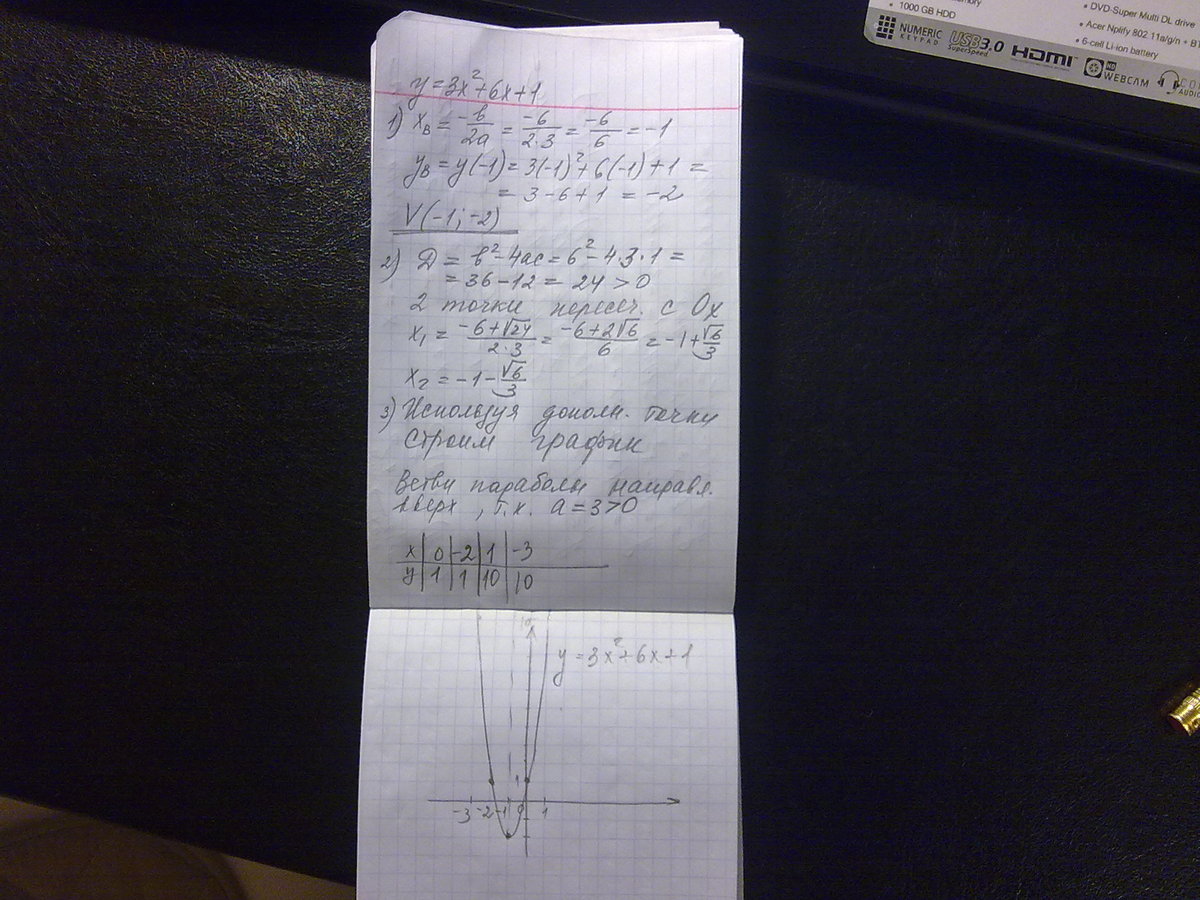 1000 GB HDD
NUMERIC
KEYPAD
USB 3.0
SuperSpeed
HDMI
HD
WEBCAM
AUDIO
DVD-Super Multi DL drive
Acer Nplify 802.11a/g/n +
6-cell Li-ion battery
y=3x²+6x+1
1) xв = -b/2a = -6/2·3 = -6/6 = -1
yв = y(-1) = 3(-1)²+6(-1)+1 =
= 3-6+1 = -2
V(-1;-2)
2) D = b²-4ac = 6²-4·3·1 =
= 36-12 = 24 > 0
2 точки пересеч. с Ox
x₁ = -6+√24/2·3 = -6+2√6/6 = -1+√6/3
x₂ = -1-√6/3
3) Используя дополн. точки
строим график
Ветви параболы направл.
вверх, т.к. a=3>0
x 0 -2 1 -3
y 1 1 10 10
y=3x²+6x+1
1
-3 -2 -1 0 1